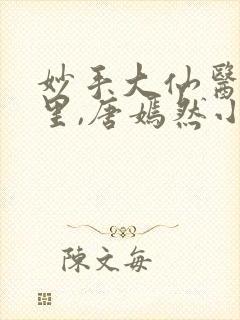 妙手大仙醫
里,唐嫣然小
陳文每